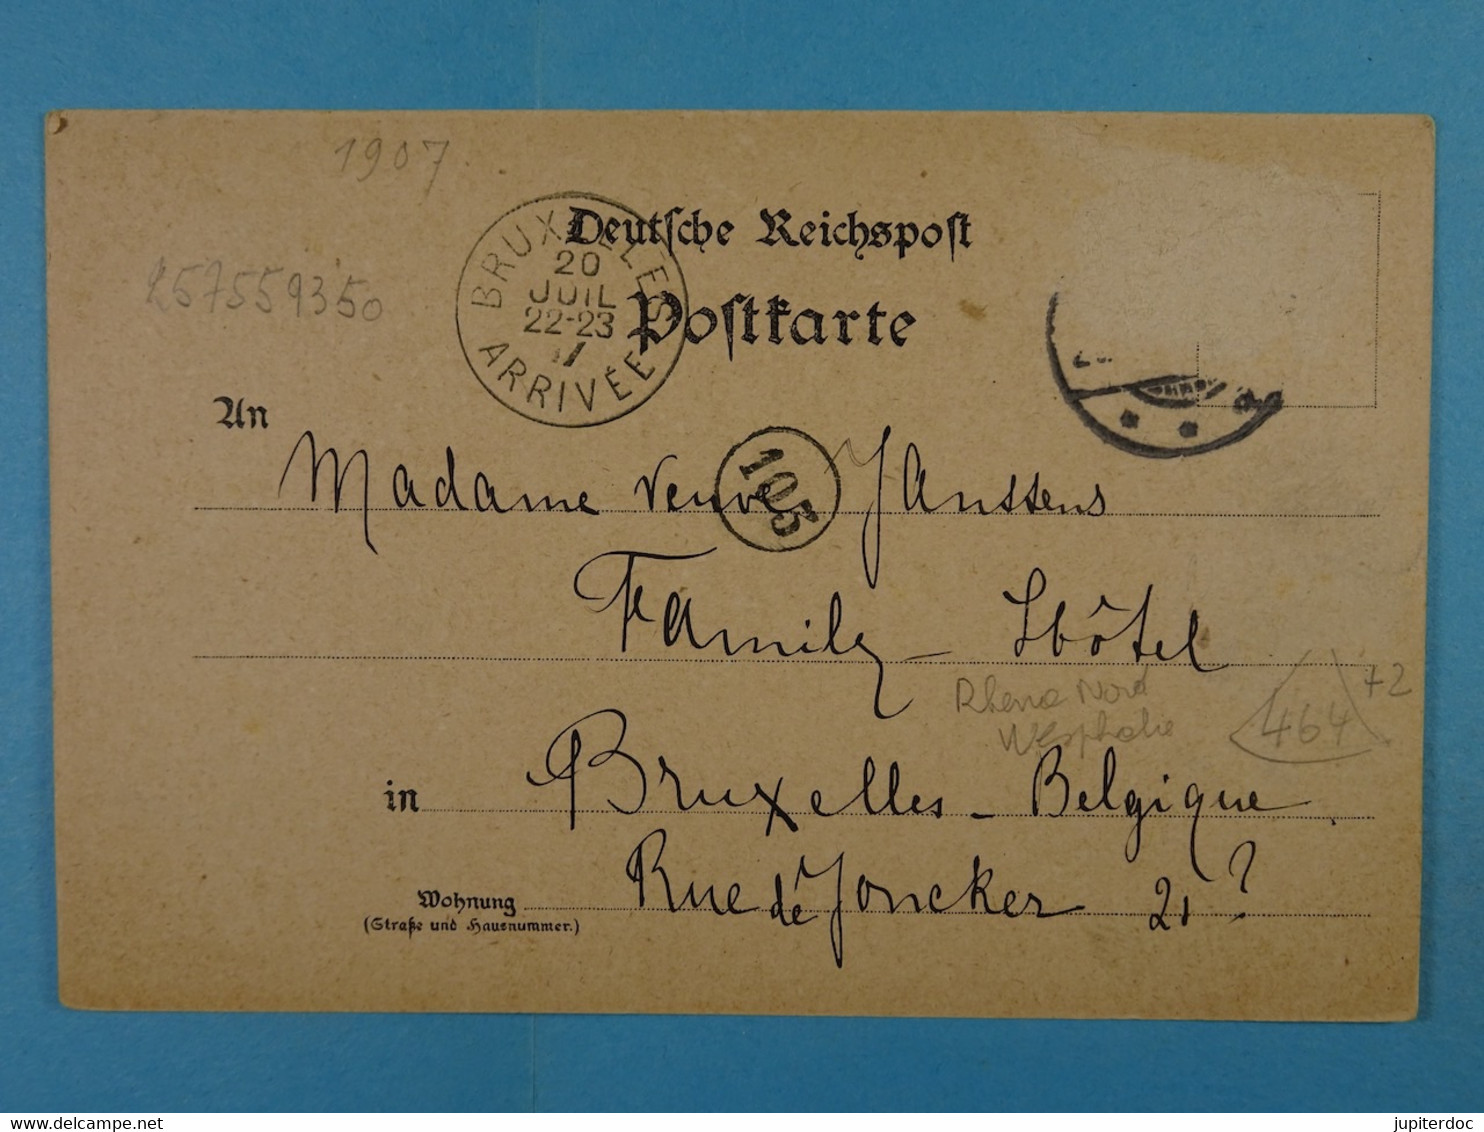 1907
Deutsche Reichspost
BRUXELLES
20
JUIL
22-23
ARRIVÉE
257559350
Postkarte
An
Madame Veuve Janssens
105
Family-Hôtel
72
Rhena Nord
464
Wesphalie
in Bruxelles - Belgique
Rue de Joncker 21?
Wohnung
(Straße und Hausnummer.)
jupiterdoc